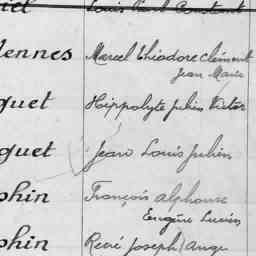 Louis Paul Constant
ennes Marcel Théodore Clément
Jean Marie
guet Hippolyte Julien Victor
guet Jean Louis Julien
phin François Alphonse
Eugène Lucien
phin René Joseph Ange